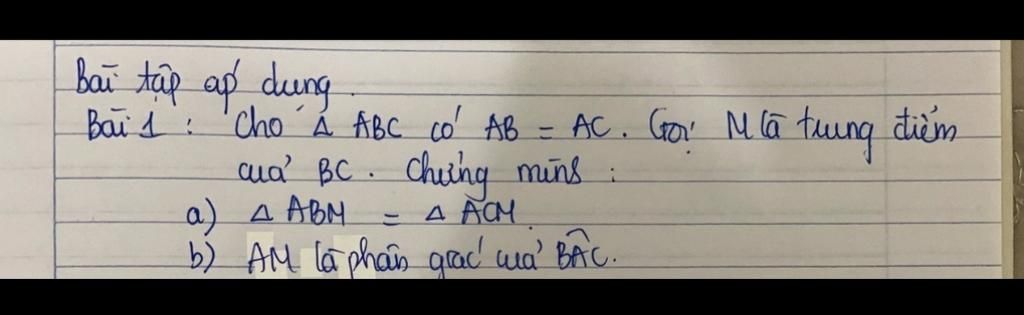 Bài tập áp dụng.
Bài 1 : Cho Δ ABC có AB = AC. Gọi M là trung điểm
của BC. Chứng minh :
a) Δ ABM = Δ ACM
b) AM là phân giác của BÂC.